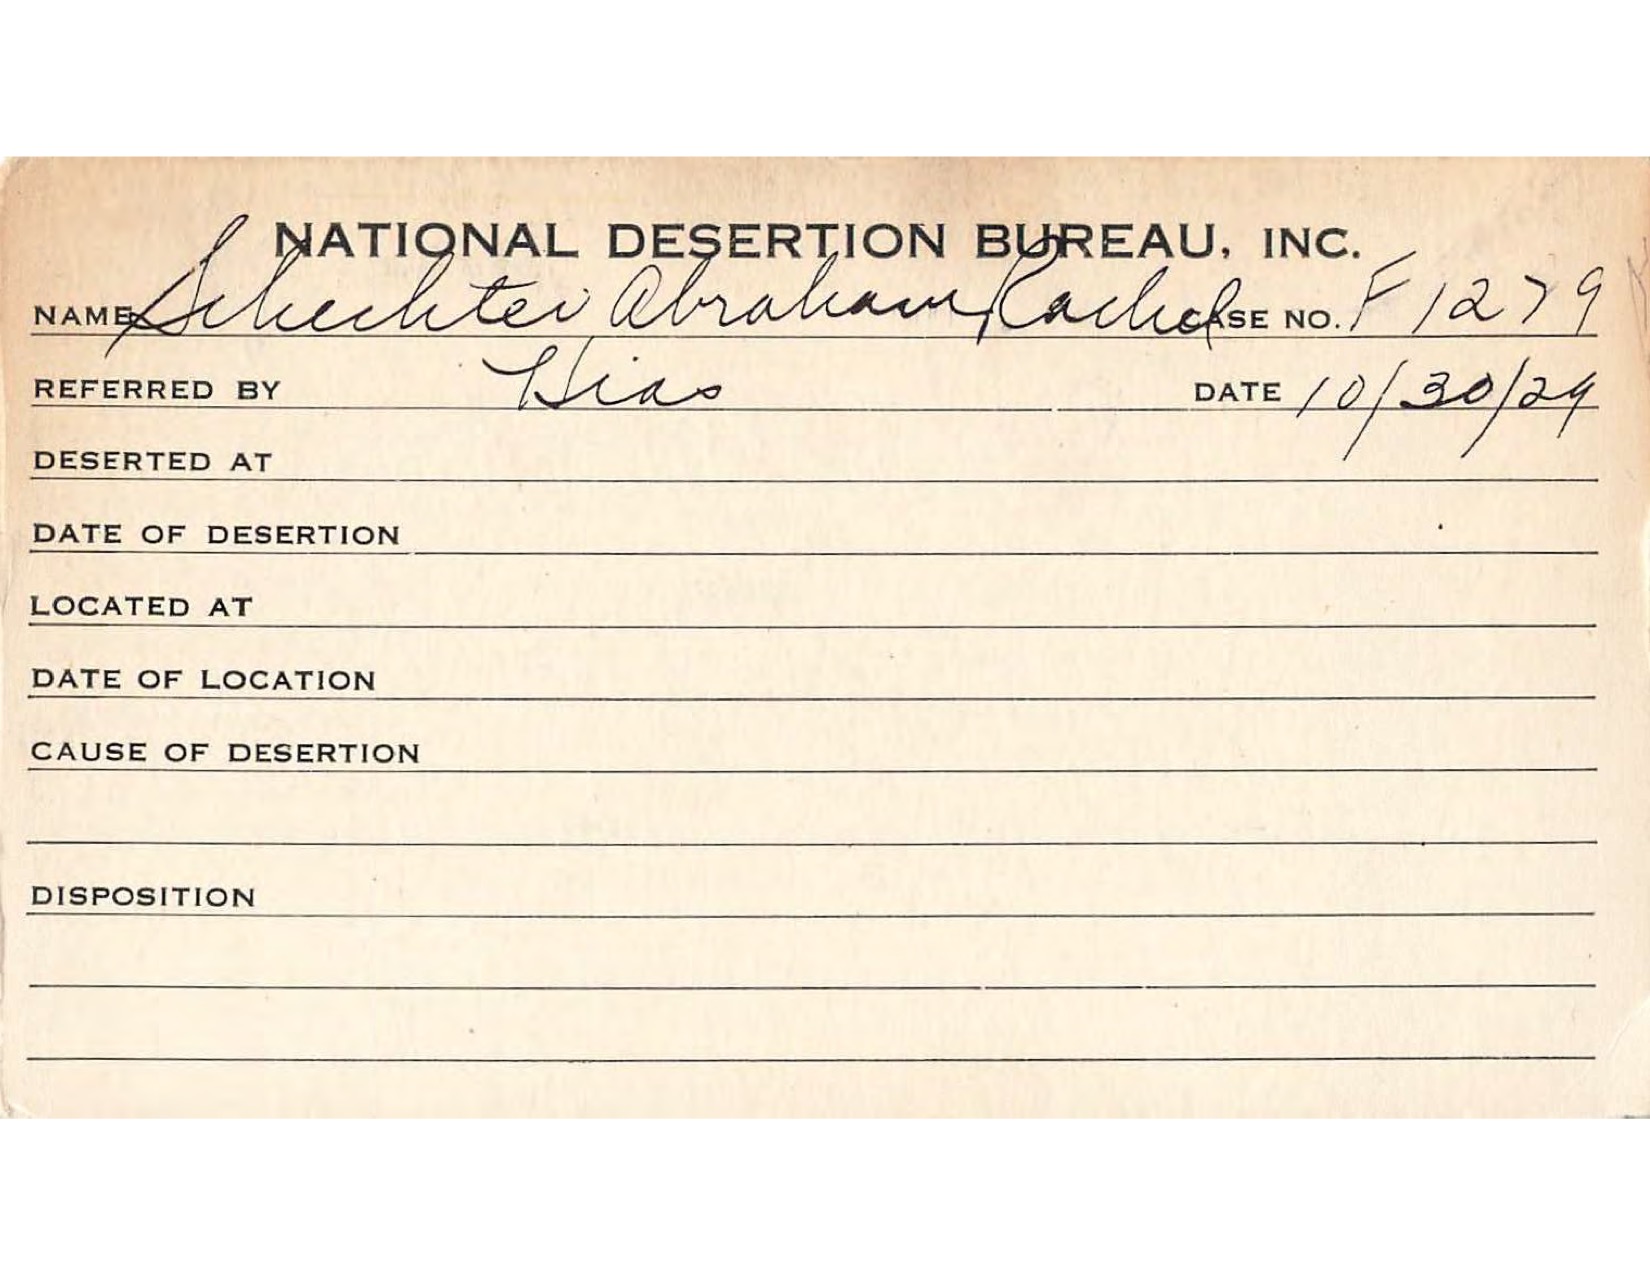 NATIONAL DESERTION BUREAU, INC.
NAME Schechter Abraham, Rachel CASE NO. F1279
REFERRED BY Hias DATE 10/30/29
DESERTED AT
DATE OF DESERTION
LOCATED AT
DATE OF LOCATION
CAUSE OF DESERTION
DISPOSITION